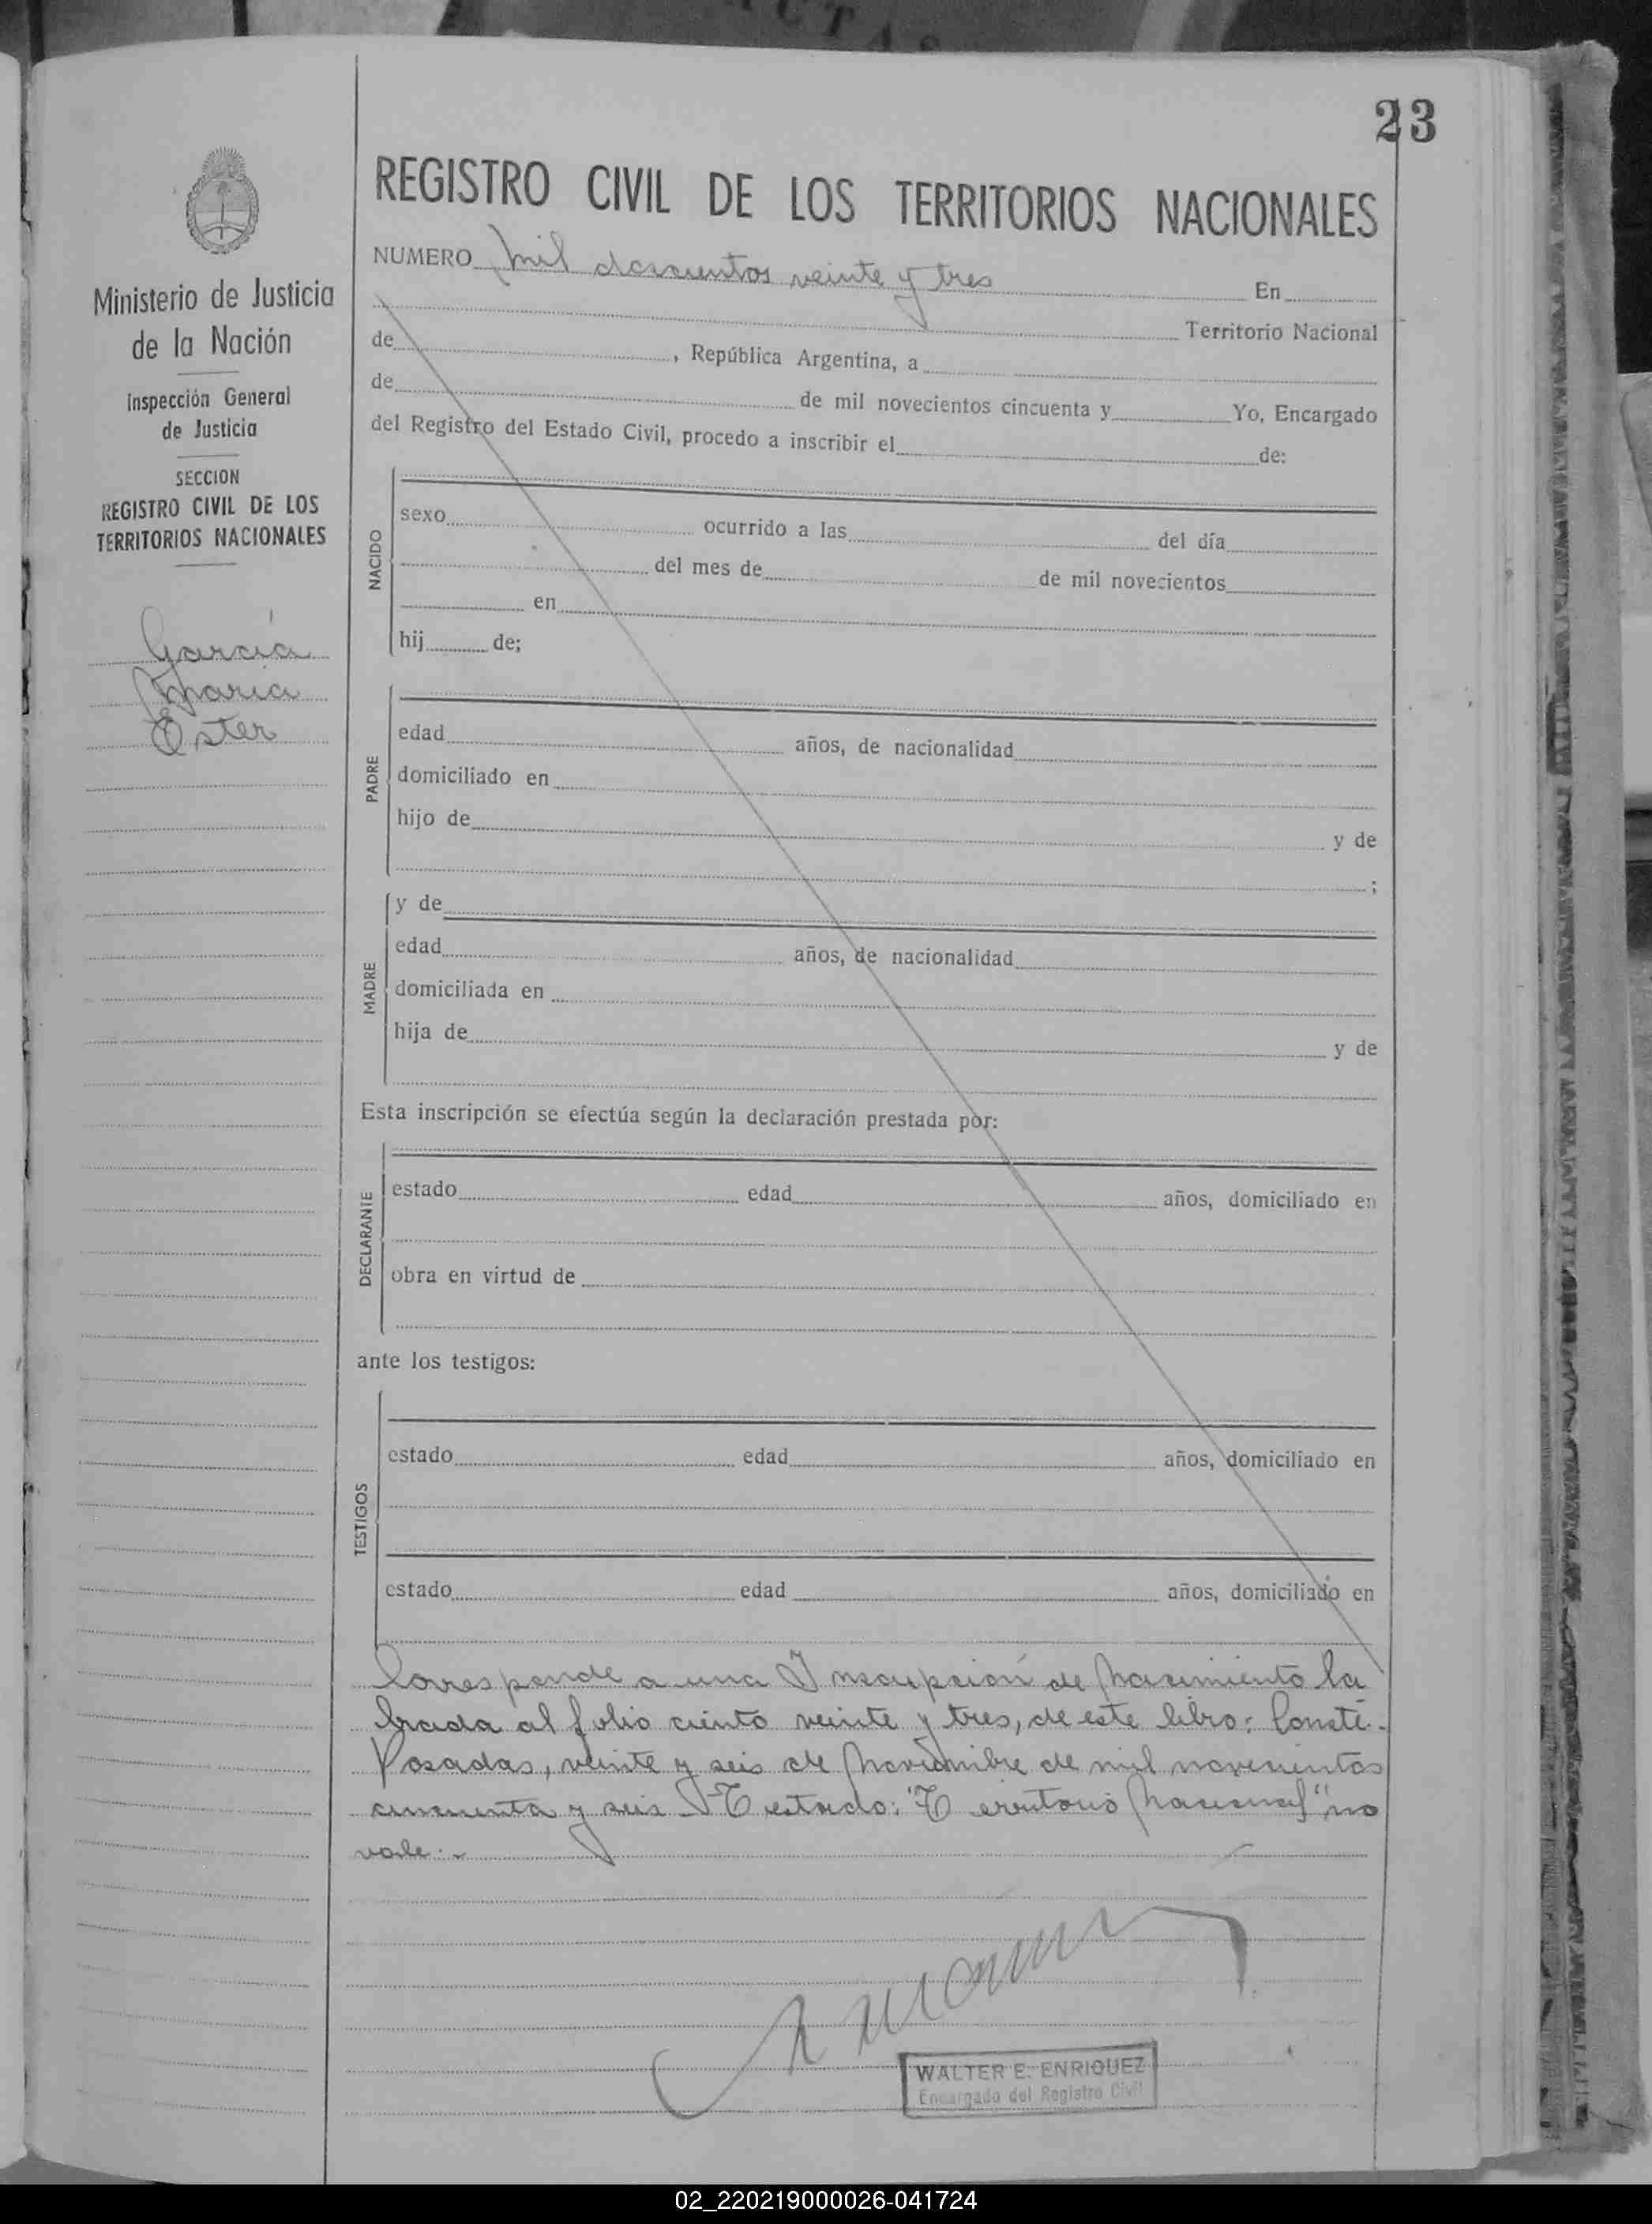 ACTAS
23
REGISTRO CIVIL DE LOS TERRITORIOS NACIONALES
Ministerio de Justicia
de la Nación
Inspección General
de Justicia
SECCION
REGISTRO CIVIL DE LOS
TERRITORIOS NACIONALES
García
Maria
Ester
NUMERO Mil doscientos veinte y tres En
Territorio Nacional
de , República Argentina, a
de de mil novecientos cincuenta y Yo, Encargado
del Registro del Estado Civil, procedo a inscribir el de:
NACIDO
sexo ocurrido a las del día
del mes de de mil novecientos
en
hij de;
PADRE
edad años, de nacionalidad
domiciliado en
hijo de y de
;
MADRE
y de
edad años, de nacionalidad
domiciliada en
hija de y de
Esta inscripción se efectúa según la declaración prestada por:
DECLARANTE
estado edad años, domiciliado en
obra en virtud de
ante los testigos:
TESTIGOS
estado edad años, domiciliado en
estado edad años, domiciliado en
Corresponde a una Inscripción de Nacimiento la
brada al folio ciento veinte y tres, de este libro: Conste.-
Posadas, veinte y seis de Noviembre de mil novecientos
cincuenta y seis Testado: "Territorio Nacional" no
vale.-
WALTER E. ENRIQUEZ
Encargado del Registro Civil
02_220219000026-041724